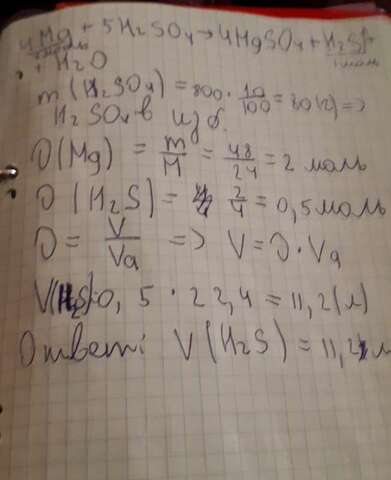 4Mg + 5H₂SO₄ → 4MgSO₄ + H₂S↑
4моль 1моль
+ H₂O
m(H₂SO₄) = 800 · 10/100 = 80(г) =>
H₂SO₄ в изб.
υ(Mg) = m/M = 48/24 = 2 моль
υ(H₂S) = 2/4 = 0,5 моль
υ = V/Va => V = υ · Va
V(H₂S) 0,5 · 22,4 = 11,2(л)
Ответ: V(H₂S) = 11,2 л